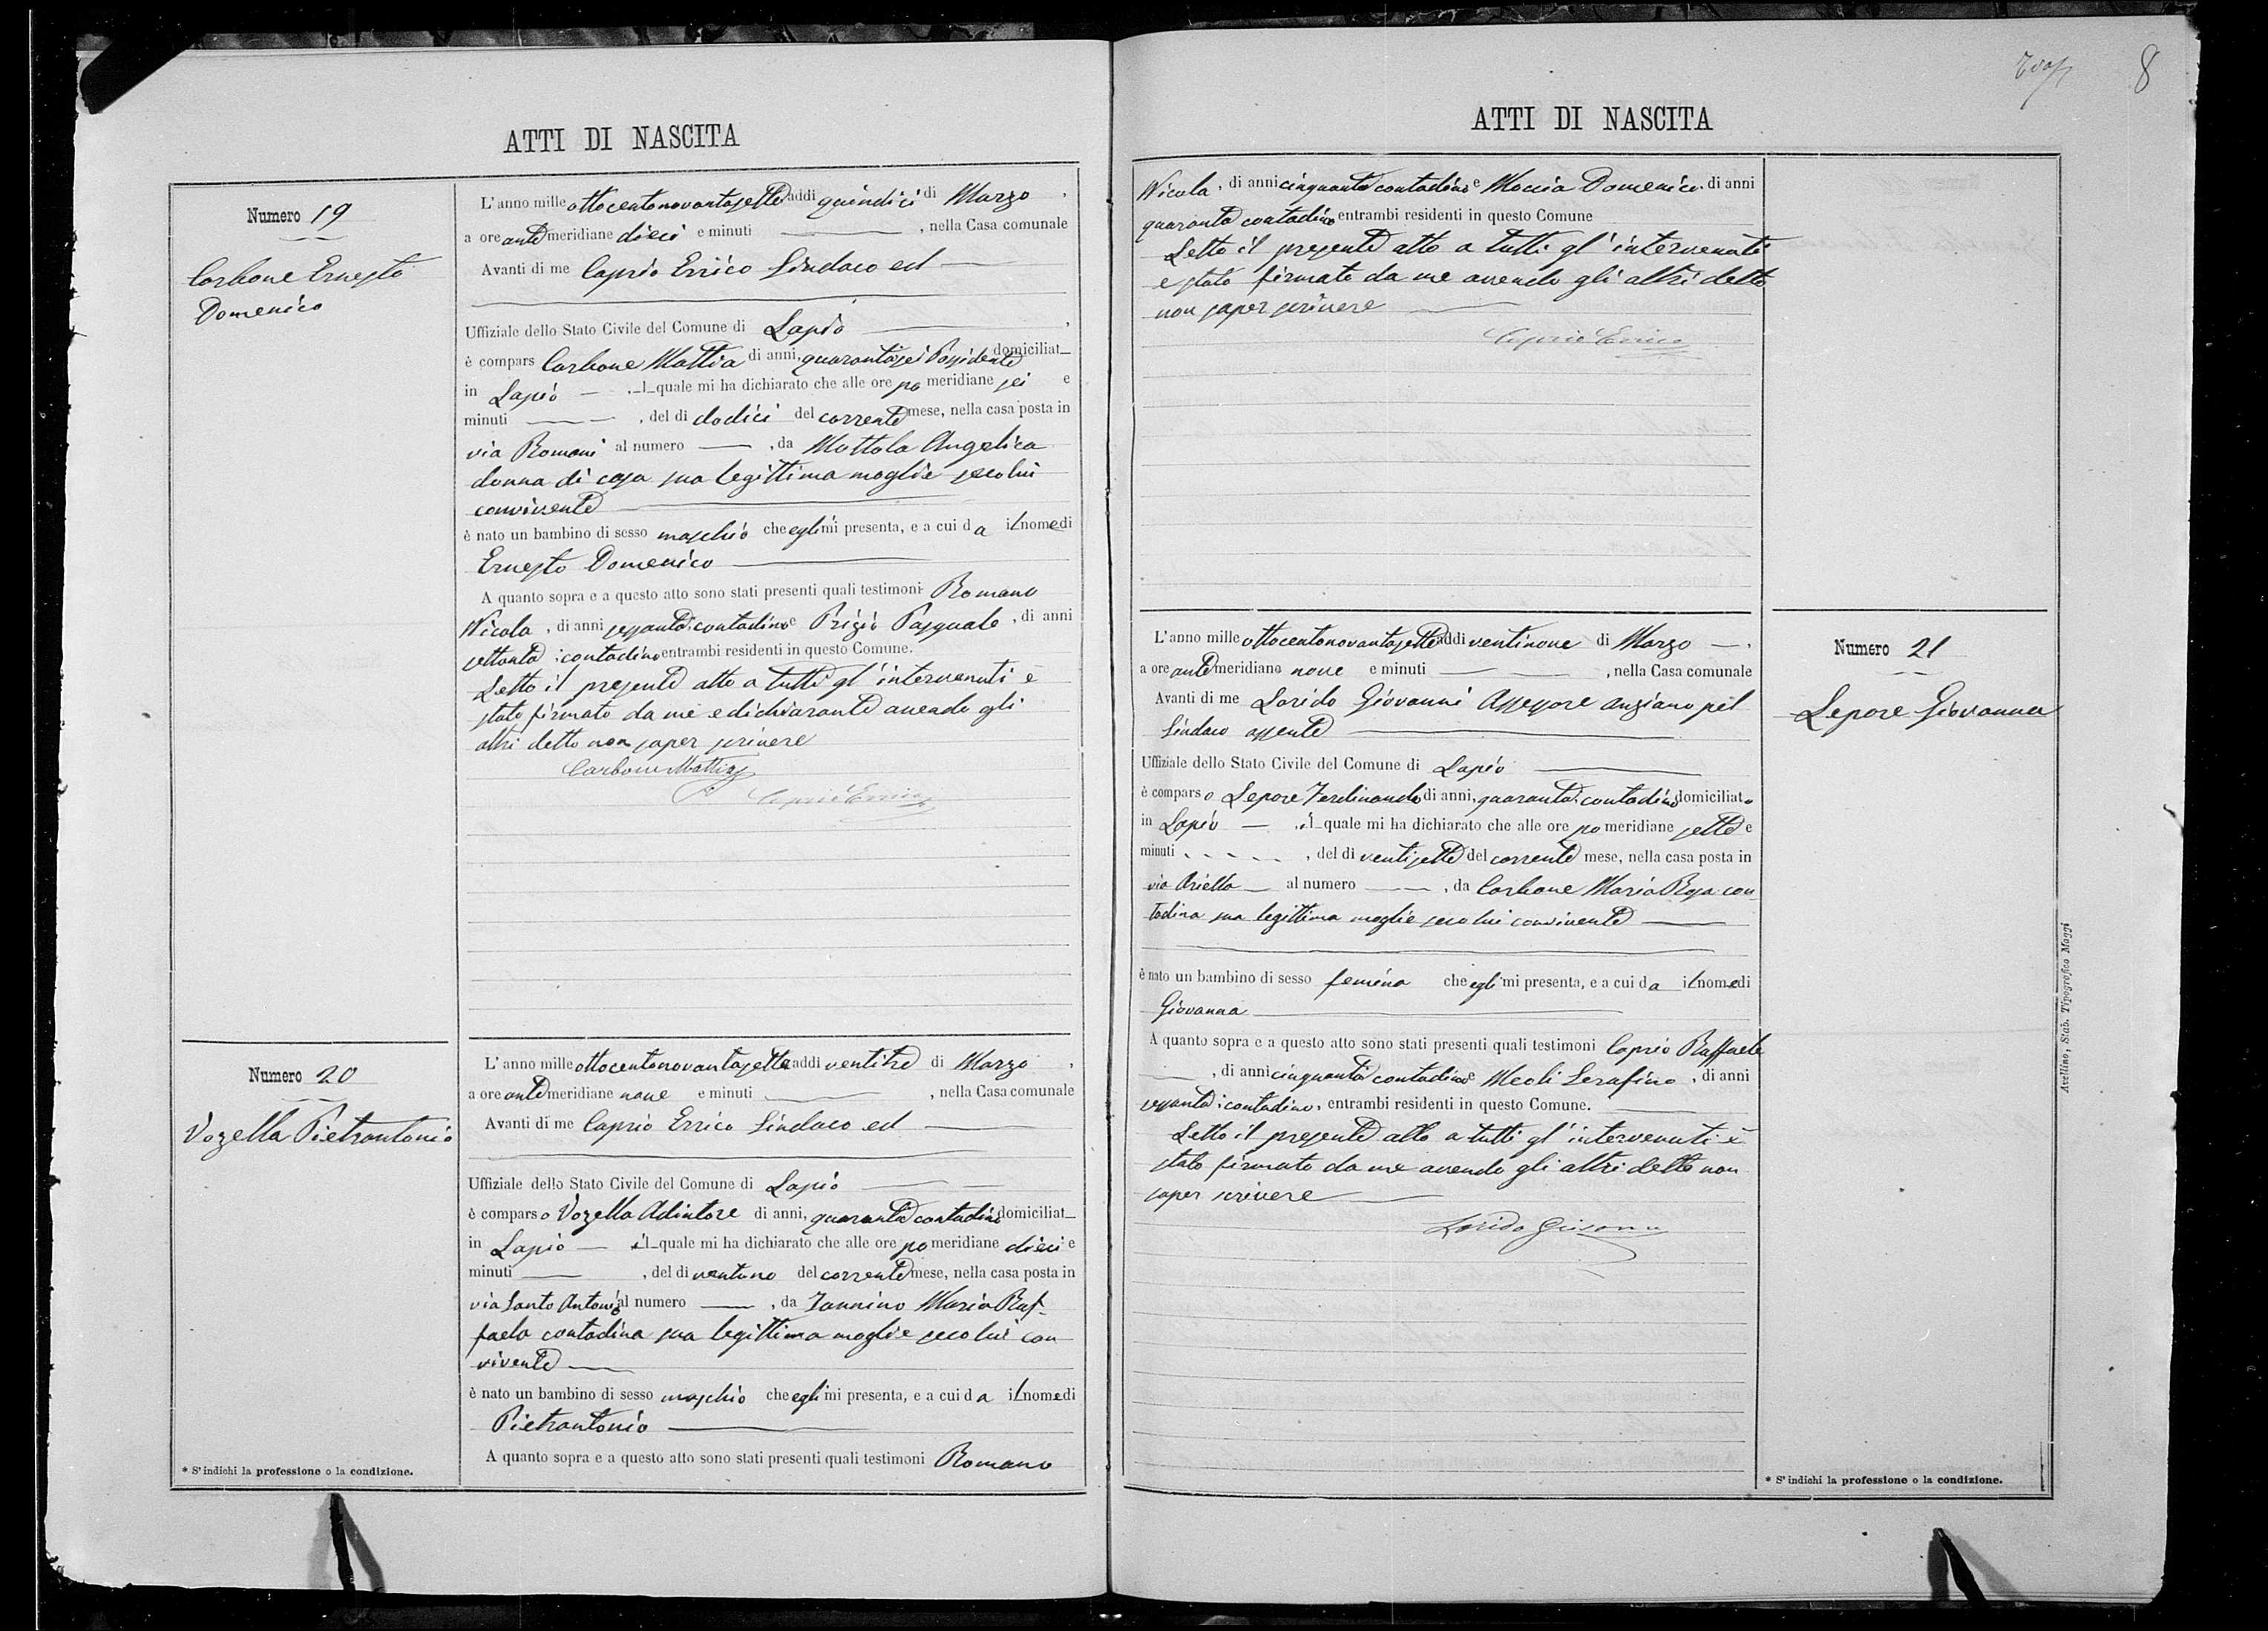 8
ATTI DI NASCITA
Numero 19
Carbone Ernesto
Domenico
L'anno mille ottocentonovantasette addì quindici di Marzo,
a ore ante meridiane dieci e minuti —, nella Casa comunale
Avanti di me Caprio Errico Sindaco ed —
Uffiziale dello Stato Civile del Comune di Lapio —,
è compars Carbone Mattia di anni, quarantasei Possidente domiciliat_
in Lapio — .-l-quale mi ha dichiarato che alle ore po meridiane sei e
minuti —, del dì dodici del corrente mese, nella casa posta in
via Romani al numero —, da Mottola Angelica
donna di casa sua legittima moglie secolui
convivente —
è nato un bambino di sesso maschio che egli mi presenta, e a cui da il nome di
Ernesto Domenico —
A quanto sopra e a questo atto sono stati presenti quali testimoni Romano
Nicola, di anni sessanta, contadino e Prizio Pasquale, di anni
settanta, contadino entrambi residenti in questo Comune.
Letto il presente atto a tutti gl'intervenuti è
stato firmato da me e dichiarante avendo gli
altri detto non saper scrivere
Carbone Mattia
Caprio Errico
Numero 20
Vozella Pietrantonio
L'anno mille ottocentonovantasette addì ventitre di Marzo,
a ore ante meridiane nove e minuti —, nella Casa comunale
Avanti di me Caprio Errico Sindaco ed —
Uffiziale dello Stato Civile del Comune di Lapio —
è comparso Vozella Adiutore di anni, quaranta contadino domiciliat_
in Lapio — il quale mi ha dichiarato che alle ore po meridiane dieci e
minuti —, del dì ventuno del corrente mese, nella casa posta in
via Santo Antonio al numero —, da Iannino Maria Raf-
faela contadina sua legittima moglie seco lui con
vivente —
è nato un bambino di sesso maschio che egli mi presenta, e a cui da il nome di
Pietrantonio —
A quanto sopra e a questo atto sono stati presenti quali testimoni Romano
* S'indichi la professione o la condizione.
ATTI DI NASCITA
Nicola, di anni cinquanta contadino e Moccia Domenico, di anni
quaranta contadino entrambi residenti in questo Comune
Letto il presente atto a tutti gl'intervenuti
e stato firmato da me avendo gli altri detto
non saper scrivere —
Caprio Errico
Numero 21
Lepore Giovanna
L'anno mille ottocentonovantasette addì ventinove di Marzo —,
a ore ante meridiane nove e minuti —, nella Casa comunale
Avanti di me Lorido Giovanni Assessore anziano pel
Sindaco assente —
Uffiziale dello Stato Civile del Comune di Lapio —
è comparso Lepore Ferdinando di anni, quaranta, contadino domiciliato
in Lapio — il quale mi ha dichiarato che alle ore po meridiane sette e
minuti - - - -, del dì ventisette del corrente mese, nella casa posta in
via Ariella — al numero —, da Carbone Maria Rosa con
tadina sua legittima moglie seco lui convivente —
è nato un bambino di sesso femina che egli mi presenta, e a cui da il nome di
Giovanna —
A quanto sopra e a questo atto sono stati presenti quali testimoni Caprio Raffaele
—, di anni cinquanta contadino e Meoli Serafino, di anni
sessanta, contadino, entrambi residenti in questo Comune. —
Letto il presente atto a tutti gl'intervenuti è
stato firmato da me avendo gli altri detto non
saper scrivere —
Lorido Giovanni
* S'indichi la professione o la condizione.
Avellino, Stab. Tipografico Maggi